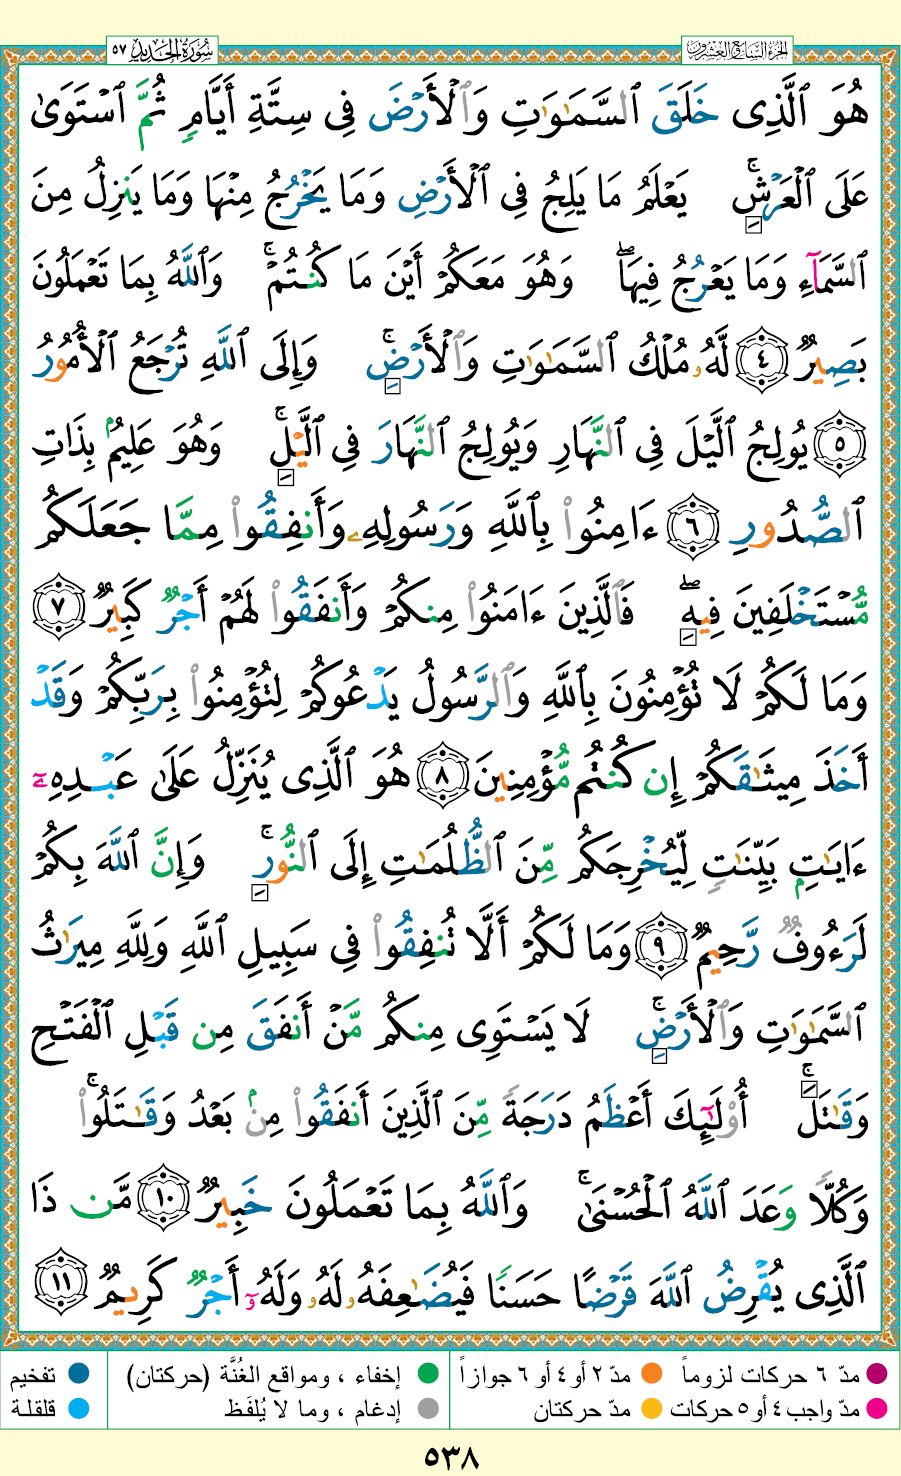 سُورَةُ الحَدِيد ٥٧
الجُزءُ السَّابِعُ وَالعِشرُونَ
هُوَ ٱلَّذِى خَلَقَ ٱلسَّمَٰوَٰتِ وَٱلْأَرْضَ فِى سِتَّةِ أَيَّامٍ ثُمَّ ٱسْتَوَىٰ
عَلَى ٱلْعَرْشِ ۚ يَعْلَمُ مَا يَلِجُ فِى ٱلْأَرْضِ وَمَا يَخْرُجُ مِنْهَا وَمَا يَنزِلُ مِنَ
ٱلسَّمَآءِ وَمَا يَعْرُجُ فِيهَا ۖ وَهُوَ مَعَكُمْ أَيْنَ مَا كُنتُمْ ۚ وَٱللَّهُ بِمَا تَعْمَلُونَ
بَصِيرٌ ٤ لَّهُۥ مُلْكُ ٱلسَّمَٰوَٰتِ وَٱلْأَرْضِ ۚ وَإِلَى ٱللَّهِ تُرْجَعُ ٱلْأُمُورُ
٥ يُولِجُ ٱلَّيْلَ فِى ٱلنَّهَارِ وَيُولِجُ ٱلنَّهَارَ فِى ٱلَّيْلِ ۚ وَهُوَ عَلِيمٌۢ بِذَاتِ
ٱلصُّدُورِ ٦ ءَامِنُوا۟ بِٱللَّهِ وَرَسُولِهِۦ وَأَنفِقُوا۟ مِمَّا جَعَلَكُم
مُّسْتَخْلَفِينَ فِيهِ ۖ فَٱلَّذِينَ ءَامَنُوا۟ مِنكُمْ وَأَنفَقُوا۟ لَهُمْ أَجْرٌ كَبِيرٌ ٧
وَمَا لَكُمْ لَا تُؤْمِنُونَ بِٱللَّهِ وَٱلرَّسُولُ يَدْعُوكُمْ لِتُؤْمِنُوا۟ بِرَبِّكُمْ وَقَدْ
أَخَذَ مِيثَٰقَكُمْ إِن كُنتُم مُّؤْمِنِينَ ٨ هُوَ ٱلَّذِى يُنَزِّلُ عَلَىٰ عَبْدِهِۦٓ
ءَايَٰتٍۭ بَيِّنَٰتٍ لِّيُخْرِجَكُم مِّنَ ٱلظُّلُمَٰتِ إِلَى ٱلنُّورِ ۚ وَإِنَّ ٱللَّهَ بِكُمْ
لَرَءُوفٌ رَّحِيمٌ ٩ وَمَا لَكُمْ أَلَّا تُنفِقُوا۟ فِى سَبِيلِ ٱللَّهِ وَلِلَّهِ مِيرَٰثُ
ٱلسَّمَٰوَٰتِ وَٱلْأَرْضِ ۚ لَا يَسْتَوِى مِنكُم مَّنْ أَنفَقَ مِن قَبْلِ ٱلْفَتْحِ
وَقَٰتَلَ ۚ أُو۟لَٰٓئِكَ أَعْظَمُ دَرَجَةً مِّنَ ٱلَّذِينَ أَنفَقُوا۟ مِنۢ بَعْدُ وَقَٰتَلُوا۟ ۚ
وَكُلًّا وَعَدَ ٱللَّهُ ٱلْحُسْنَىٰ ۚ وَٱللَّهُ بِمَا تَعْمَلُونَ خَبِيرٌ ١٠ مَّن ذَا
ٱلَّذِى يُقْرِضُ ٱللَّهَ قَرْضًا حَسَنًا فَيُضَٰعِفَهُۥ لَهُۥ وَلَهُۥٓ أَجْرٌ كَرِيمٌ ١١
مدّ ٦ حركات لزوماً مدّ ٢ أو ٤ أو ٦ جوازاً إخفاء ، ومواقع الغُنَّة (حركتان) تفخيم
مدّ واجب ٤ أو ٥ حركات مدّ حركتان إدغام ، وما لا يُلفَظ قلقلة
٥٣٨